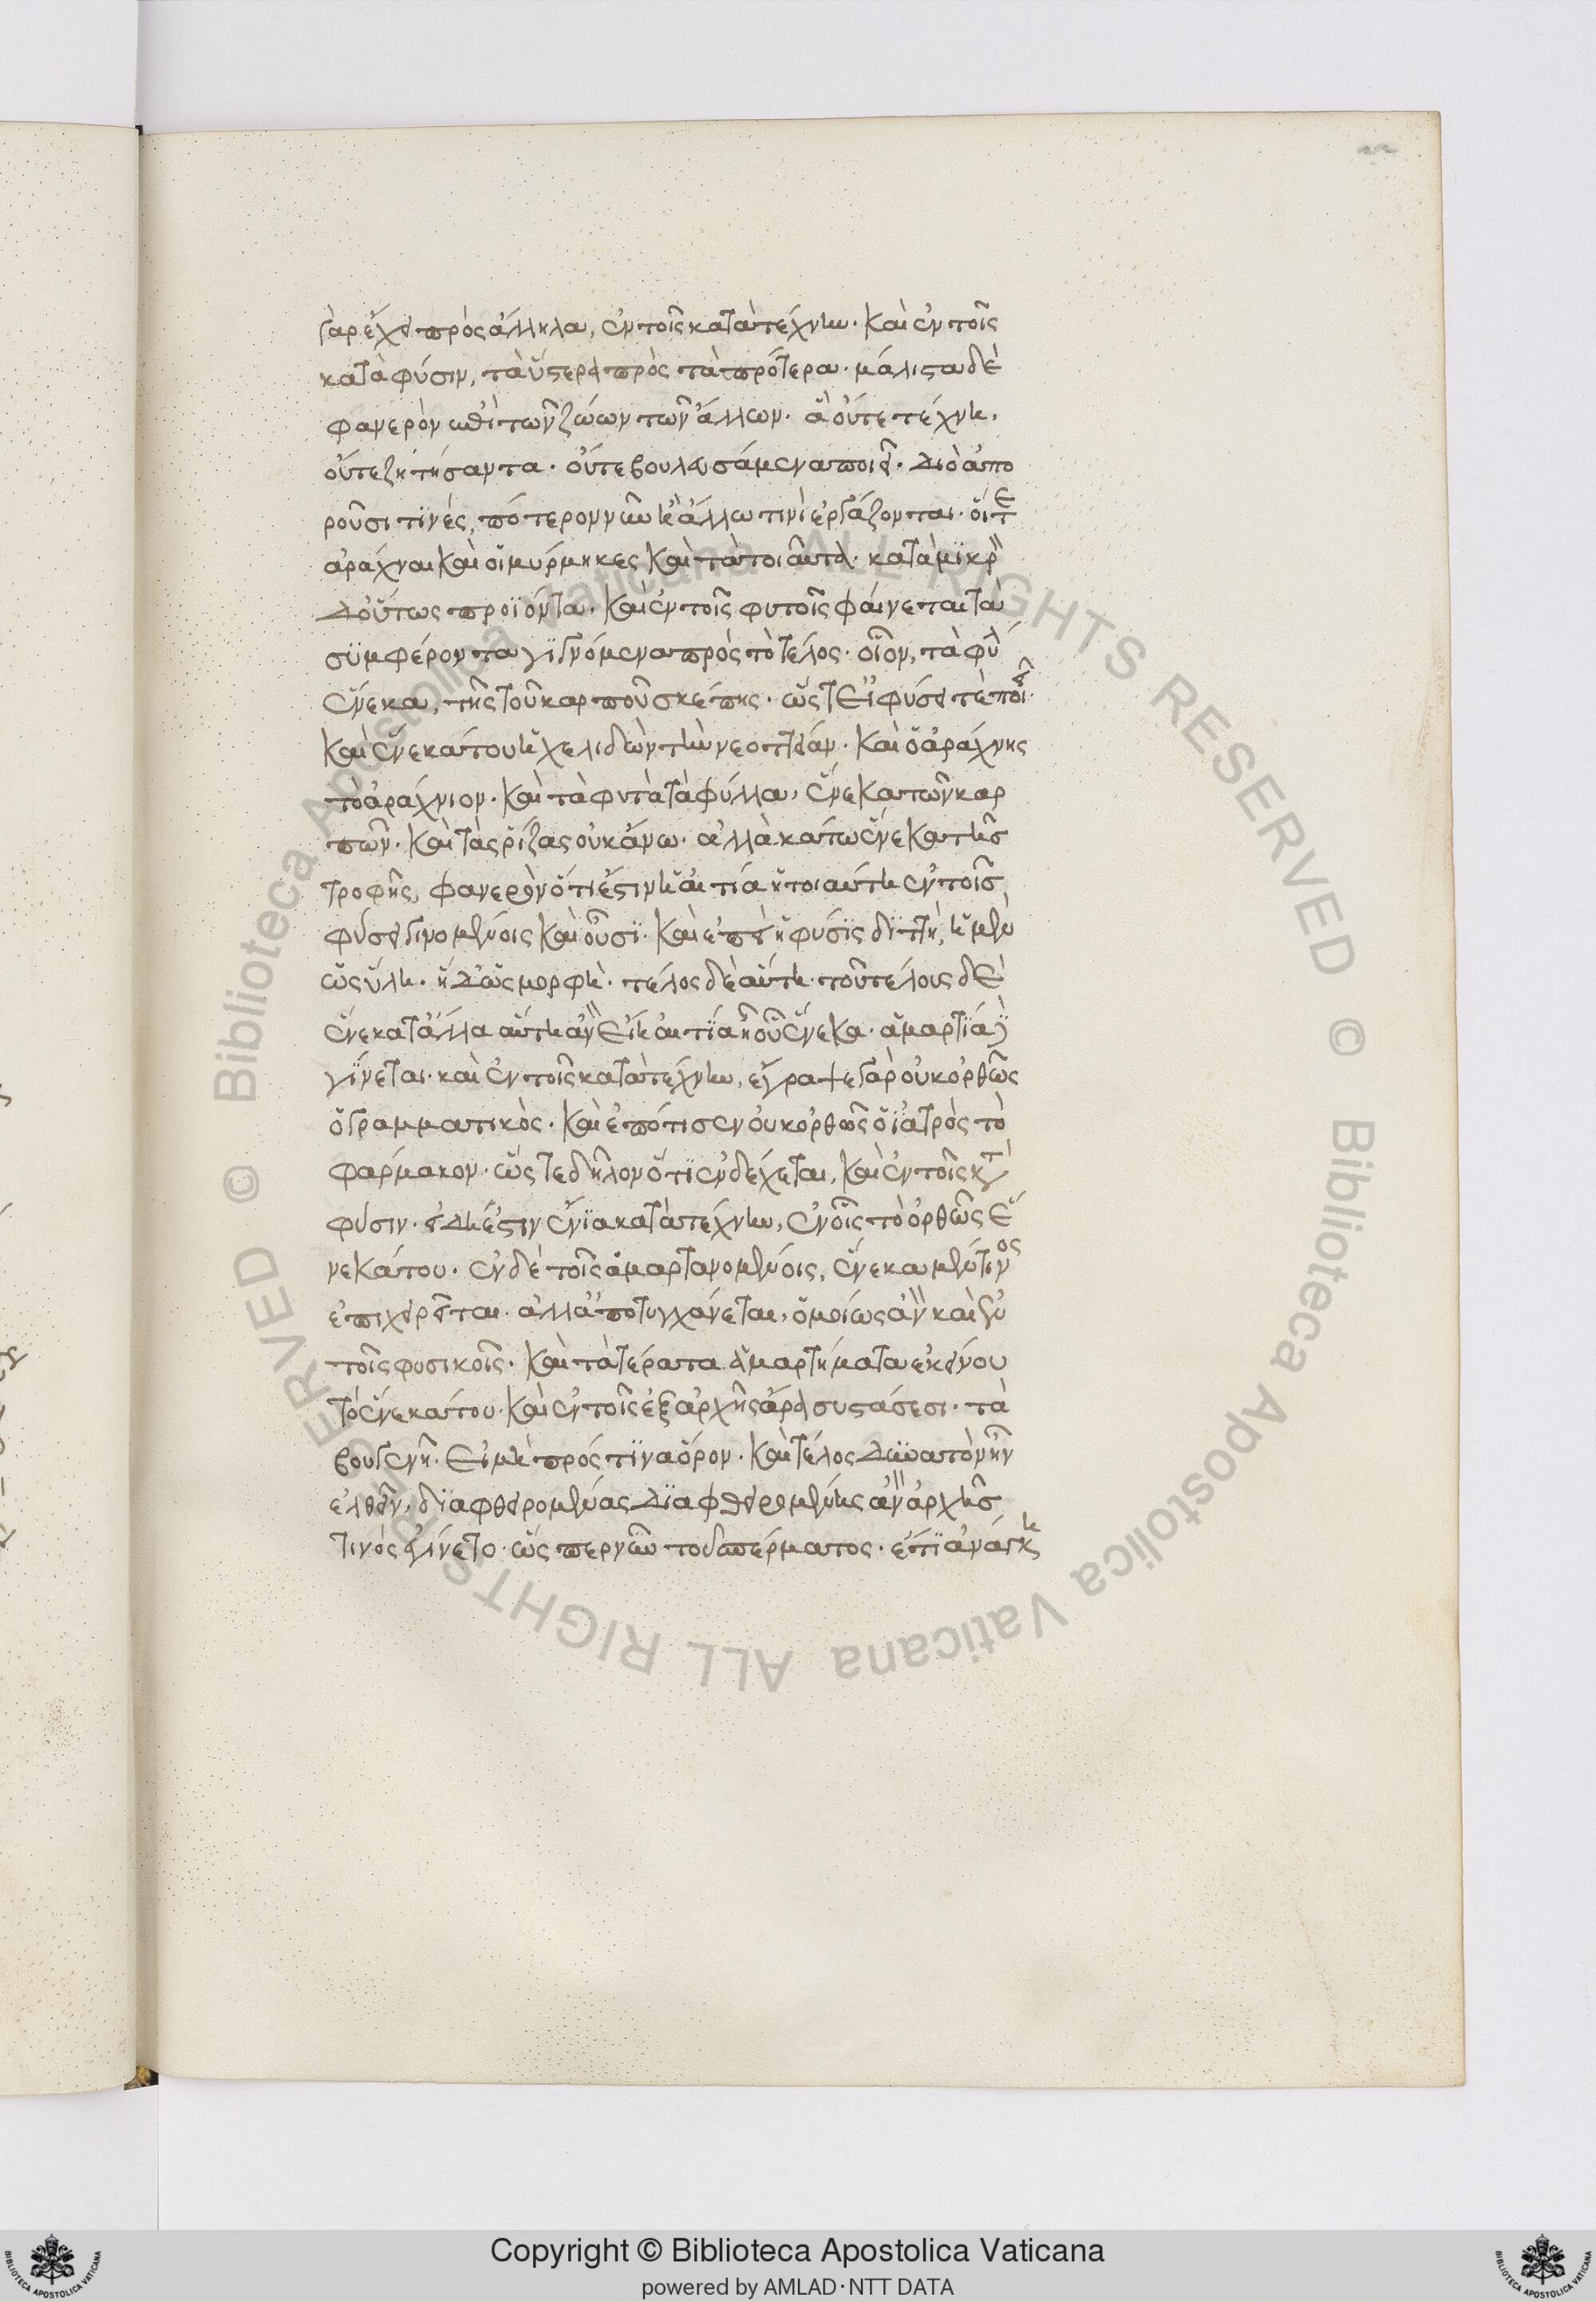 γὰρ ἔχει πρὸς ἄλληλα, ἐν τοῖς κατὰ τέχνην· καὶ ἐν τοῖς
κατὰ φύσιν, τὰ ὕστερα πρὸς τὰ πρότερα· μάλιστα δὲ
φανερὸν ἐπὶ τῶν ζώων τῶν ἄλλων· ἃ οὔτε τέχνη·
οὔτε ζητήσαντα· οὔτε βουλευσάμενα ποιεῖ· διὸ ἀπο
ροῦσι τινές, πότερον νῶ ἢ ἄλλω τινὶ ἐργάζονται· οἵ τε
ἀράχναι καὶ οἱ μύρμηκες καὶ τὰ τοιαῦτα· κατὰ μικρὸν
δ' οὕτως προϊόντα· καὶ ἐν τοῖς φυτοῖς φαίνεται τὰ
συμφέροντα γιγνόμενα πρὸς τὸ τέλος· οἷον, τὰ φύλ
ἕνεκα, τῆς τοῦ καρποῦ σκέπης· ὥστ' εἰ φύσει τὲ ποιεῖ·
καὶ ἕνεκά του ἡ χελιδὼν τὴν νεοττιάν· καὶ ὁ ἀράχνης
τὸ ἀράχνιον· καὶ τὰ φυτὰ τὰ φύλλα, ἕνεκα τῶν καρ
πῶν· καὶ τὰς ῥίζας οὐκ ἄνω· ἀλλὰ κάτω ἕνεκα τῆς
τροφῆς, φανερὸν ὅτι ἔστιν ἡ αἰτία ἡ τοιαύτη ἐν τοῖς
φύσει γινομένοις καὶ οὖσι· καὶ ἐπεὶ ἡ φύσις διττή, ἡ μὲν
ὡς ὕλη· ἡ δ' ὡς μορφή· τέλος δὲ αὕτη· τοῦ τέλους δὲ
ἕνεκα τἄλλα αὕτη ἂν εἴη αἰτία ἡ οὗ ἕνεκα· ἁμαρτία δὲ
γίνεται· καὶ ἐν τοῖς κατὰ τέχνην, ἔγραψε γὰρ οὐκ ὀρθῶς
ὁ γραμματικὸς· καὶ ἐπότισεν οὐκ ὀρθῶς ὁ ἰατρὸς τὸ
φάρμακον· ὥστε δῆλον ὅτι ἐνδέχεται, καὶ ἐν τοῖς κατὰ
φύσιν· εἰ δὴ ἔστιν ἔνια κατὰ τέχνην, ἐν οἷς τὸ ὀρθῶς ἕ
νεκά του· ἐν δὲ τοῖς ἁμαρτανομένοις, ἕνεκα μέν τινος
ἐπιχειρεῖται· ἀλλ' ἀποτυγχάνεται, ὁμοίως ἂν καὶ ἐν
τοῖς φυσικοῖς· καὶ τὰ τέρατα ἁμαρτήματα ἐκείνου
τὸ ἕνεκά του· καὶ ἐν τοῖς ἐξ ἀρχῆς ἄρα συστάσεσι· τὰ
βουγενῆ· εἰ μὴ πρός τινα ὅρον· καὶ τέλος δυνατὸν ἦν
ἐλθεῖν, διαφθειρομένας διαφθειρομένης ἂν ἀρχῆς
τινὸς ἐγίνετο· ὥσπερ νῦν τοῦ σπέρματος· ἔτι ἀνάγκη